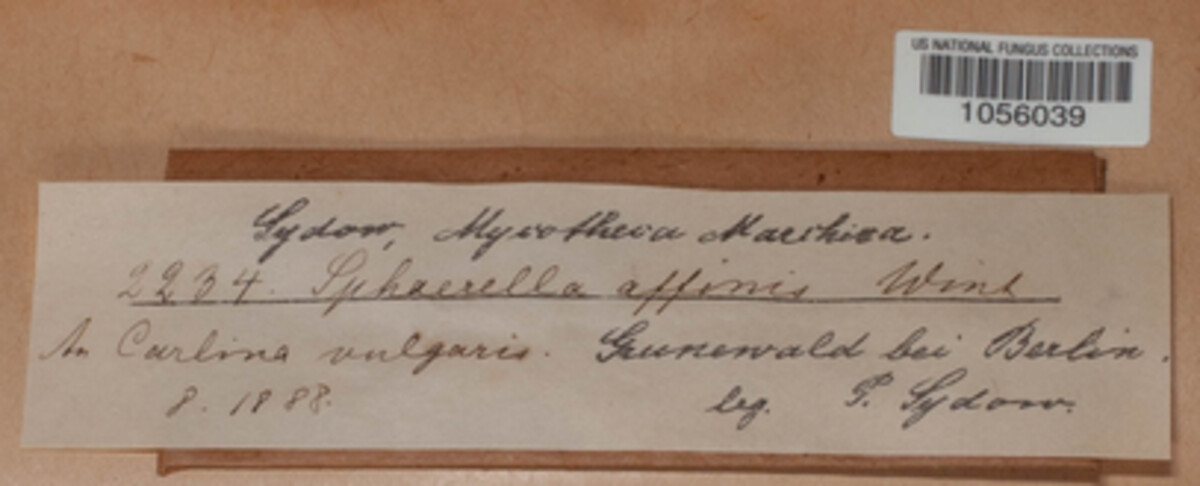 US NATIONAL FUNGUS COLLECTIONS
1056039
Sydow, Mycotheca Marchica.
2234. Sphaerella affinis Wint
An Carlina vulgaris. Grunewald bei Berlin.
8. 1888. leg. P. Sydow.